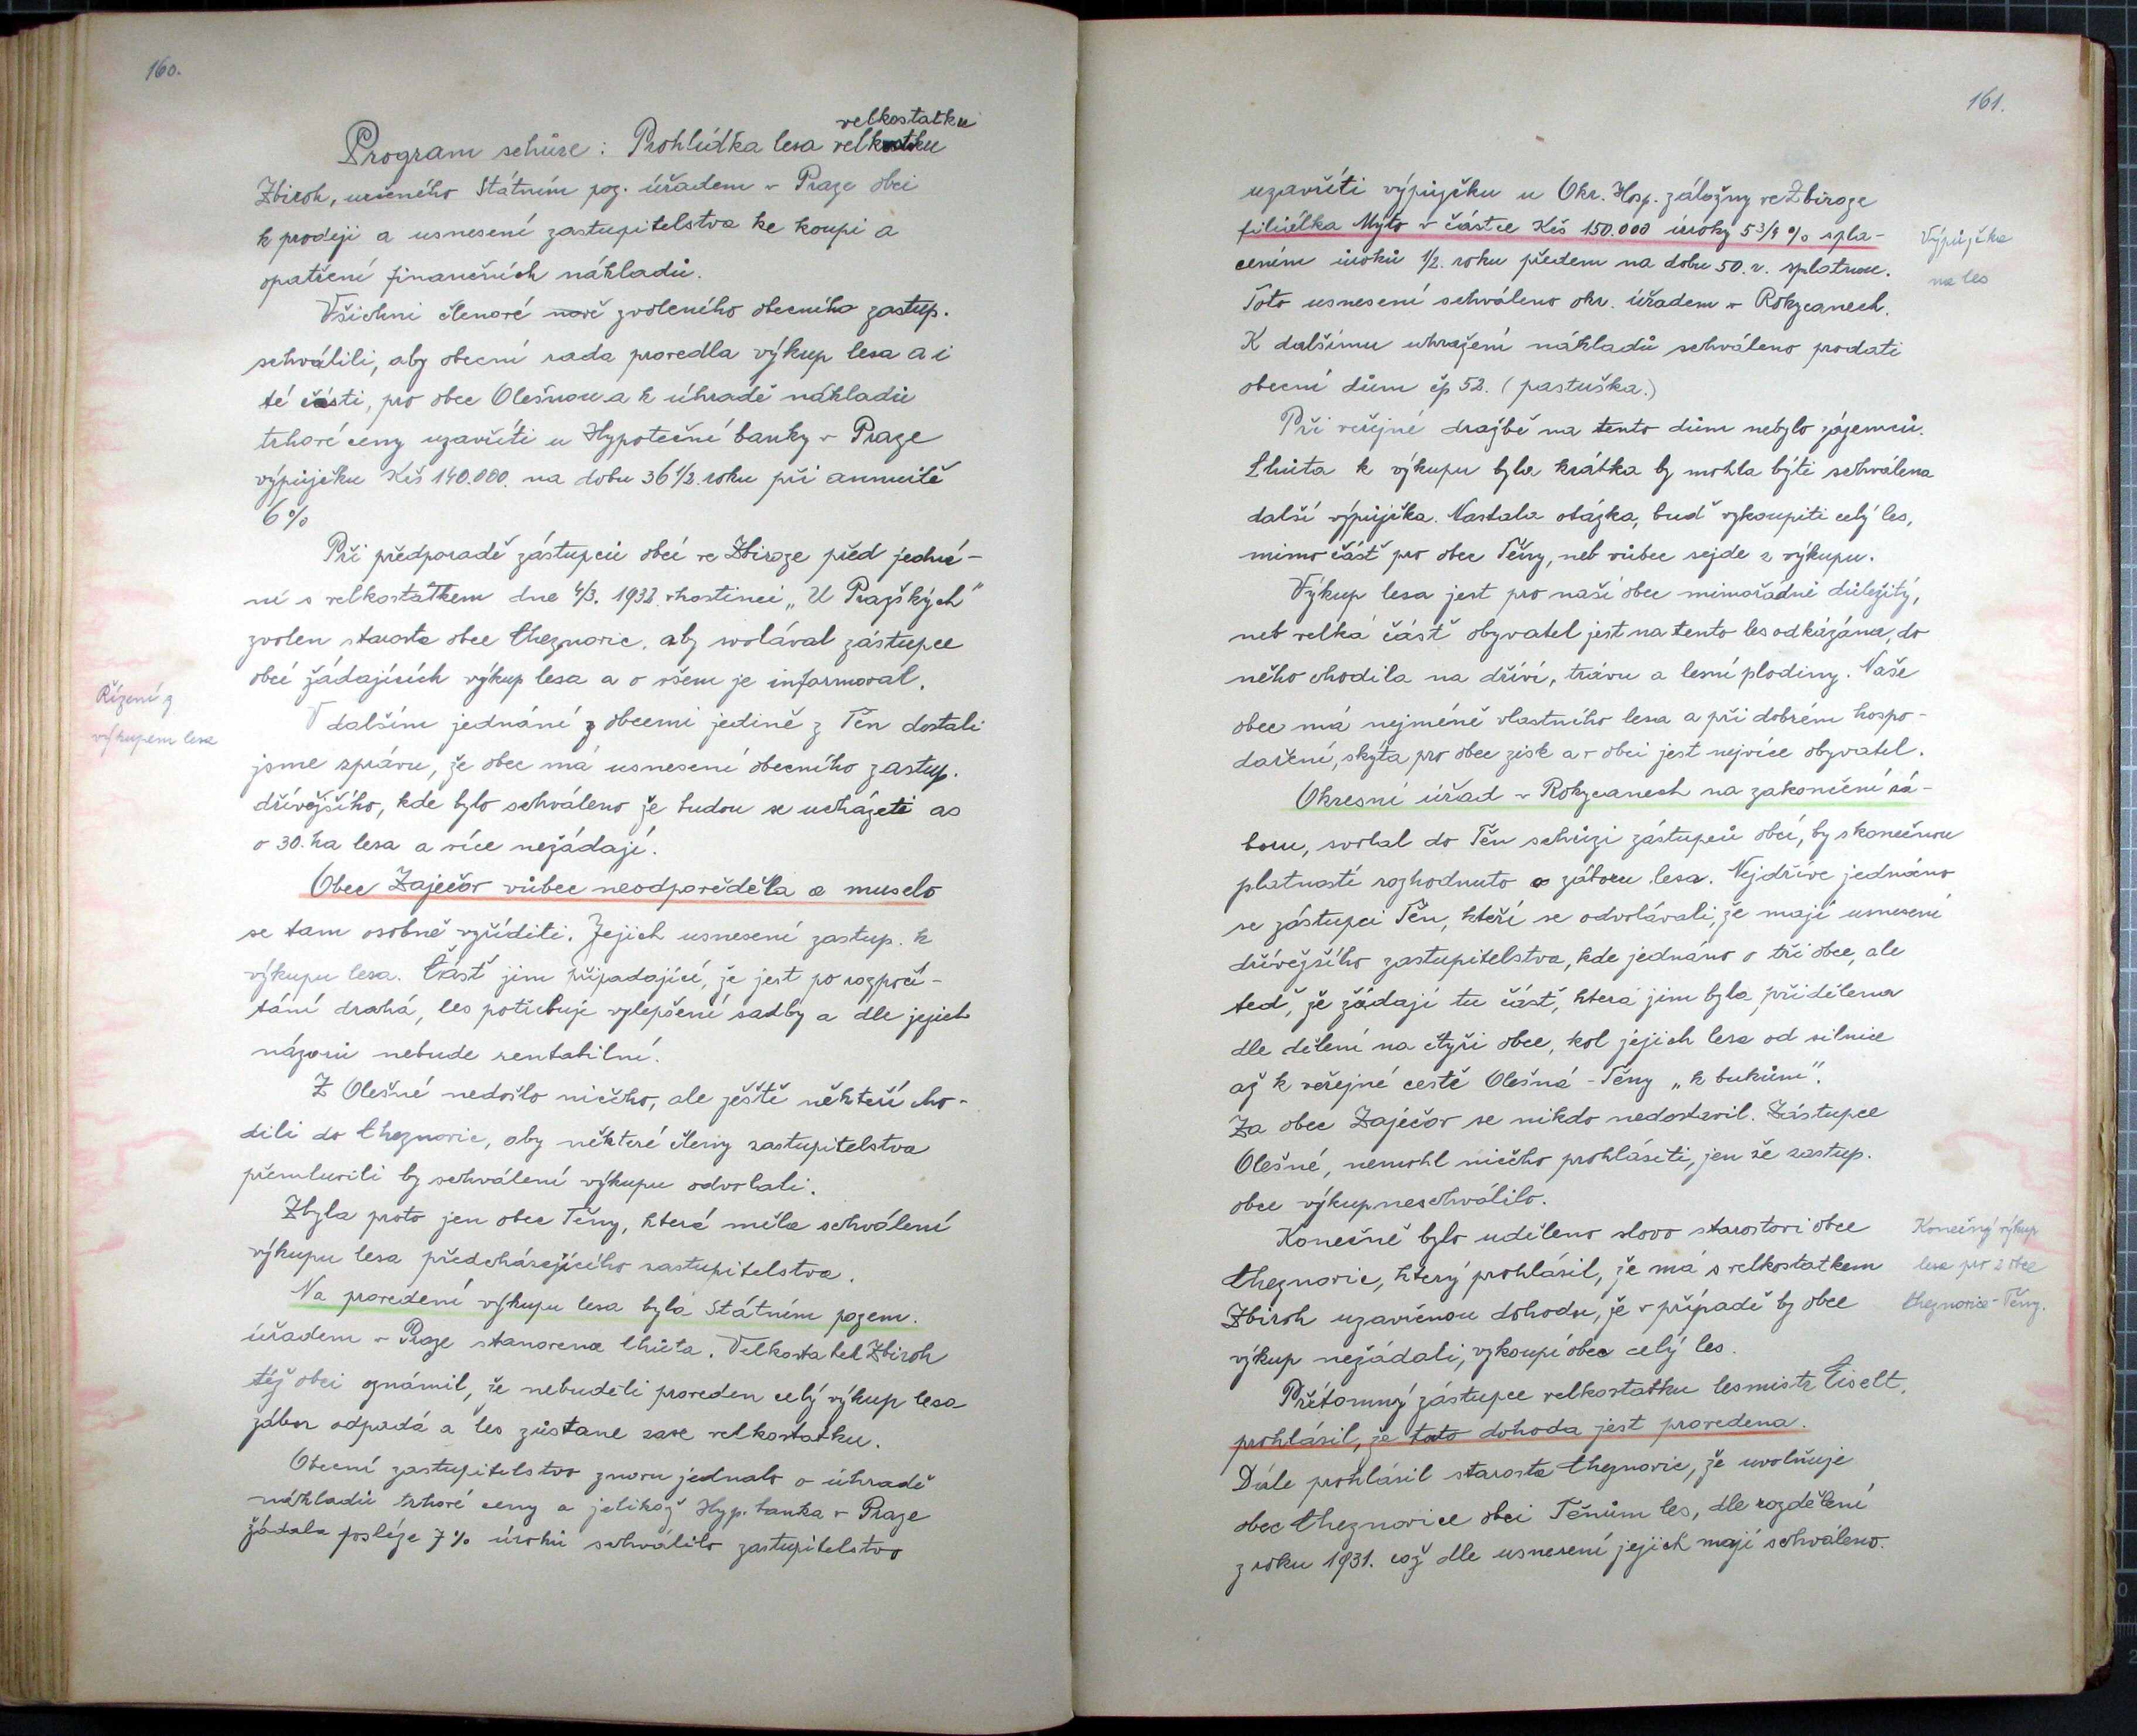 160.
velkostatku
Program schůze: Prohlídka lesa
Zbiroh, určeného Státním poz. úřadem v Praze obci
k prodeji a usnesení zastupitelstva ke koupi a
opatření finančních nákladů.
Všichni členové nově zvoleného obecního zastup.
schválili, aby obecní rada provedla výkup lesa a i
té části, pro obec Olešnou a k úhradě nákladů
trhové ceny uzavříti u Hypoteční banky v Praze
výpůjčku Kčs 140.000. na dobu 36 1/2. roku při annuitě
6%
Při předporadě zástupců obcí ve Zbiroze před jedná-
ní s velkostatkem dne 4/3. 1932. v hostinci „U Pražských"
zvolen starosta obce Cheznovic, aby svolával zástupce
obcí žádajících výkup lesa a o všem je informoval.
Řízení z
výkupem lesa
V dalším jednání z obcemi jedině z Těn dostali
jsme zprávu, že obec má usnesení obecního zastup.
dřívějšího, kde bylo schváleno že budou se ucházeti as
o 30. ha lesa a více nežádají.
Obec Zaječov vůbec neodpověděla a muselo
se tam osobně vyříditi. Jejich usnesení zastup. k
výkupu lesa. Část jim připadající, že jest po rozpočí-
tání drahá, les potřebuje vylepšení sadby a dle jejich
názorů nebude rentabilní.
Z Olešné nedošlo ničeho, ale ještě někteří cho-
dili do Cheznovic, aby některé členy zastupitelstva
přemluvili by schválení výkupu odvolali.
Zbyla proto jen obec Těny, která měla schválení
výkupu lesa předcházejícího zastupitelstva.
Na provedení výkupu lesa byla Státním pozem.
úřadem v Praze stanovena lhůta. Velkostatek Zbiroh
též obci oznámil, že nebudeli proveden celý výkup lesa
zábor odpadá a les zůstane zase velkostatku.
Obecní zastupitelstvo znovu jednalo o úhradě
nákladů trhové ceny a jelikož Hyp. banka v Praze
žádala posléze 7% úroků schválilo zastupitelstvo
161.
uzavříti výpůjčku u Okr. Hosp. záložny ve Zbiroze
filiálka Mýto v částce Kčs 150.000 úroky 5 3/4 % spla-
cením úroků 1/2. roku předem na dobu 50. r. splatnou.
Výpůjčka
na les
Toto usnesení schváleno okr. úřadem v Rokycanech.
K dalšímu uhražení nákladů schváleno prodati
obecní dům čp 52. (pastuška.)
Při veřejné dražbě na tento dům nebylo zájemců.
Lhůta k výkupu byla krátka by mohla býti schválena
další výpůjčka. Nastala otázka, buď vykoupiti celý les,
mimo část pro obec Těny, neb vůbec sejde z výkupu.
Výkup lesa jest pro naši obec mimořádně důležitý,
neb velká část obyvatel jest na tento les odkázána, do
něho chodila na dříví, trávu a lesní plodiny. Naše
obec má nejméně vlastního lesa a při dobrém hospo-
daření, skýta pro obec zisk a v obci jest nejvíce obyvatel.
Okresní úřad v Rokycanech na zakončení zá-
boru, svolal do Těn schůzi zástupců obcí, by s konečnou
platností rozhodnuto o záboru lesa. Nejdříve jednáno
se zástupci Těn, kteří se odvolávali, že mají usnesení
dřívějšího zastupitelstva, kde jednáno o tři obce, ale
teď, že žádají tu část, která jim byla přidělena
dle dělení na čtyři obce, kol jejich lesa od silnice
až k veřejné cestě Olešná - Těny „k bukům".
Za obec Zaječov se nikdo nedostavil. Zástupce
Olešné, nemohl ničeho prohlásiti, jen že zastup.
obce výkup neschválilo.
Konečně bylo uděleno slovo starostovi obce
Cheznovic, který prohlásil, že má s velkostatkem
Zbiroh uzavřenou dohodu, že v případě by obce
výkup nežádali, vykoupí obec celý les.
Konečný výkup
lesa pro 2 obce
Cheznovice - Těny.
Přítomný zástupce velkostatku lesmistr Eiselt,
prohlásil, že tato dohoda jest provedena.
Dále prohlásil starosta Cheznovic, že uvolňuje
obec Cheznovice obci Těnům les, dle rozdělení
z roku 1931. což dle usnesení jejich mají schváleno.